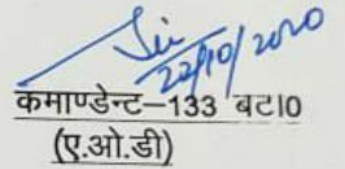 22/10/2020
कमाण्डेन्ट–133 बटा0
(ए.ओ.डी)